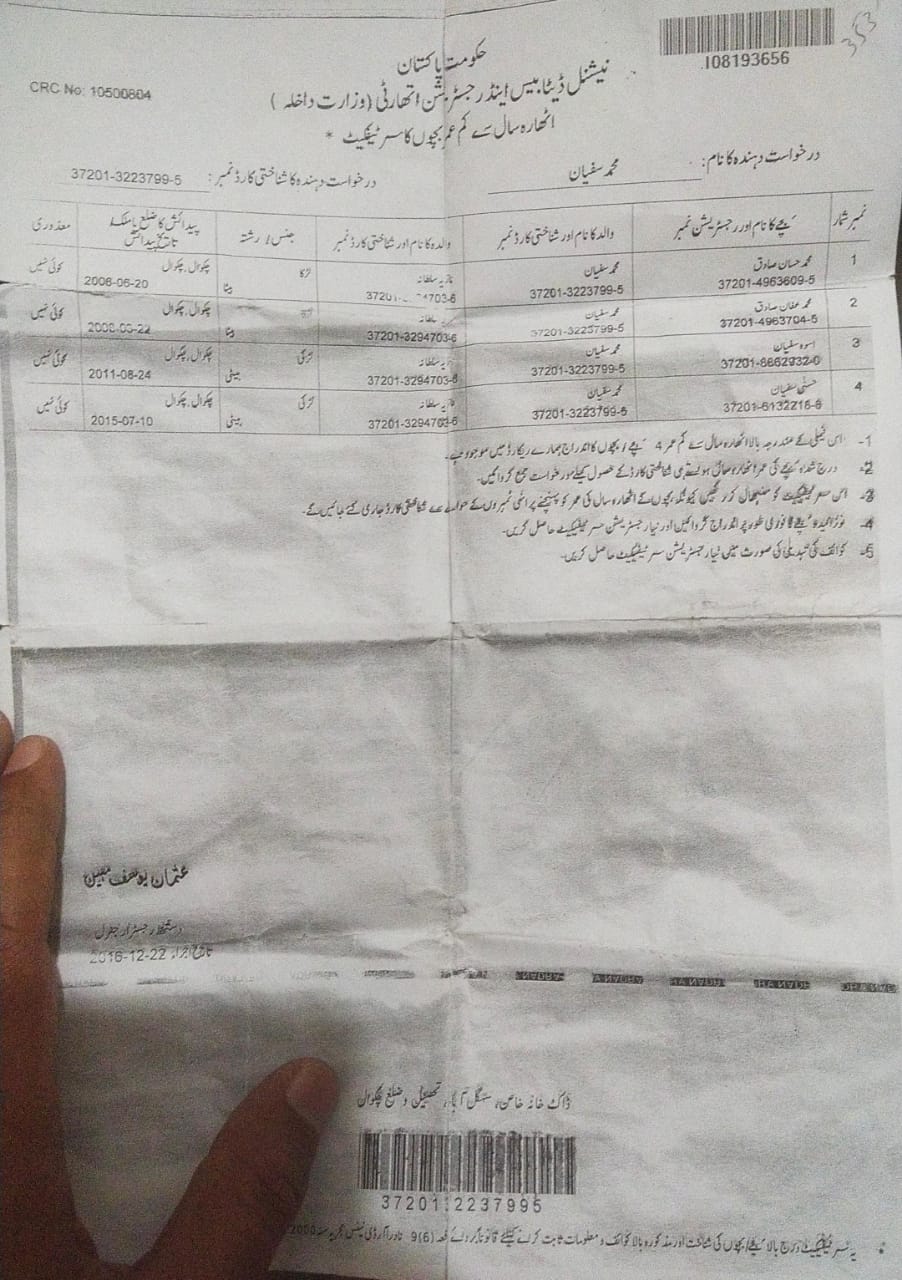 353
I08193656.
حکومت پاکستان
CRC No: 10500804
نیشنل ڈیٹا بیس اینڈ رجسٹریشن اتھارٹی (وزارت داخلہ)
اٹھارہ سال سے کم عمر بچوں کا سرٹیفکیٹ *
درخواست دہندہ کا نام: محمد سفیان
درخواست دہندہ کا شناختی کارڈ نمبر: 37201-3223799-5
نمبر شمار بچے کا نام اور رجسٹریشن نمبر والد کا نام اور شناختی کارڈ نمبر والدہ کا نام اور شناختی کارڈ نمبر جنس / رشتہ پیدائش کا ضلع یا ملک تاریخ پیدائش معذوری
1 محمد حسان صادق محمد سفیان نازیہ سلطانہ لڑکا چکوال، چکوال کوئی نہیں
37201-4963609-5 37201-3223799-5 بیٹا 2006-06-20
2 محمد عفان صادق محمد سفیان سلطانہ چکوال، چکوال کوئی نہیں
37201-4963704-5 37201-3223799-5 37201-3294703-6 بیٹا
3 اسوہ سفیان محمد سفیان سلطانہ لڑکی چکوال، چکوال کوئی نہیں
37201-3223799-5 37201-3294703-6 بیٹی 2011-08-24
4 سفیان محمد سفیان نازیہ سلطانہ لڑکی چکوال، چکوال کوئی نہیں
37201-3223799-5 37201-3294703-6 بیٹی 2015-07-10
1- اس فیملی کے مندرجہ بالا اٹھارہ سال سے کم عمر 4 بچے / بچوں کا اندراج ہمارے ریکارڈ میں موجود ہے۔
2- درج شدہ بچے کی عمر اٹھارہ سال ہوتے ہی شناختی کارڈ کے حصول کیلئے درخواست جمع کروائیں۔
3- اس سرٹیفکیٹ کو سنبھال کر رکھیں کیونکہ بچوں کے اٹھارہ سال کی عمر کو پہنچنے پر انہی نمبروں کے حوالے سے شناختی کارڈ جاری کئے جائیں گے۔
4- نوزائیدہ بچے کا فوری طور پر اندراج کروائیں اور نیا رجسٹریشن سرٹیفکیٹ حاصل کریں۔
5- کوائف کی تبدیلی کی صورت میں نیا رجسٹریشن سرٹیفکیٹ حاصل کریں۔
عثمان یوسف مبین
دستخط رجسٹرار جنرل
تاریخ اجراء 2016-12-22
ڈاک خانہ خاص، تحصیل و ضلع چکوال
3720132237995
* یہ سرٹیفکیٹ درج بالا بچے / بچوں کی شناخت اور مذکورہ بالا کوائف و معلومات ثابت کرنے کیلئے قانوناً بروئے دفعہ 9(6) نادرا آرڈیننس مجریہ سنہ 2000